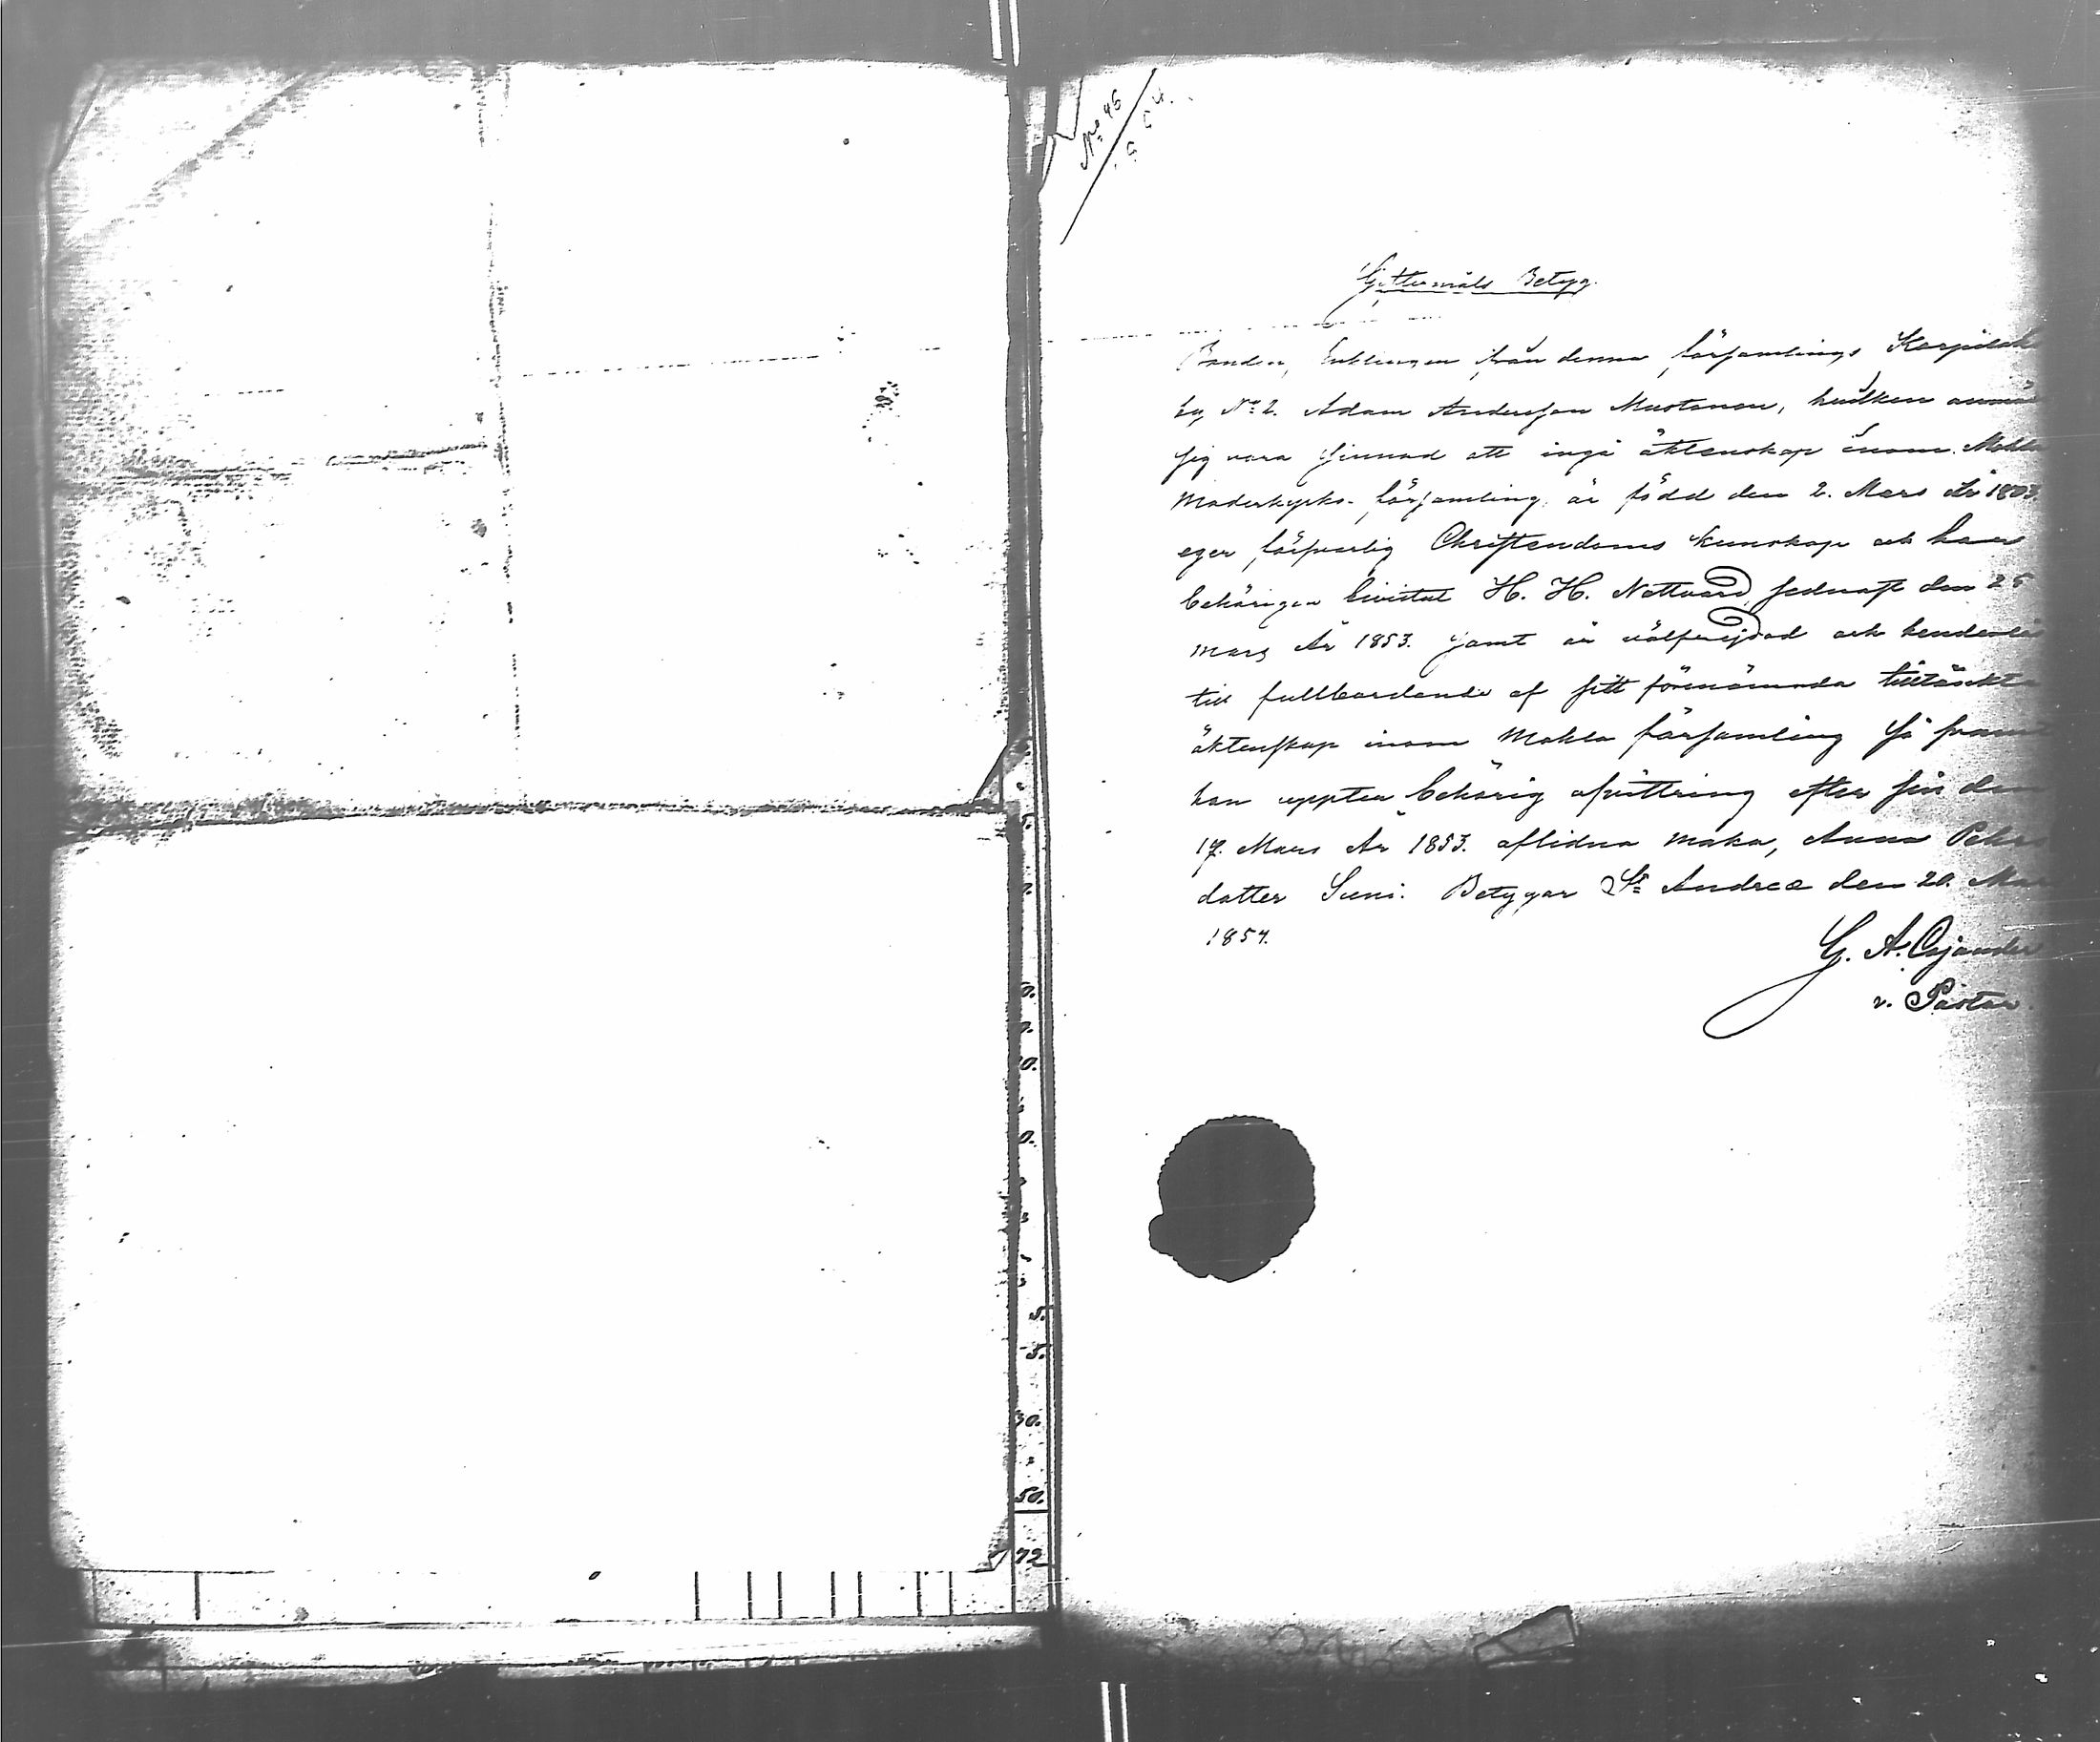 No 46
Giftermåls Betyg.
Bonden, Enklingen från denna församlings Karpilak
by, No 2. Adam Andersson Mustonen, hvilken anmä
sig vara sinnad att ingå äktenskap inom Mohla
Moderkyrko-församling är född den 2. Mars År 1803,
eger försvarlig Christendoms kunskap och har
behörigen bivistat H. H. Nattvard sednast den 25
Mars År 1853. samt är välfrejdad och hinderslös
till fullbordande af sitt förenämnda tilltänkta
äktenskap inom Mohla församling så framt
han uppter behörig afvittring efter sin den
17. Mars År 1853. aflidna maka, Anna Pehrs
dotter Suni. Betygar St Andreæ den 20. Mar
1854.
G. A. Cajander
v. Pastor.
0.
0.
0.
5.
5.
30.
50.
72